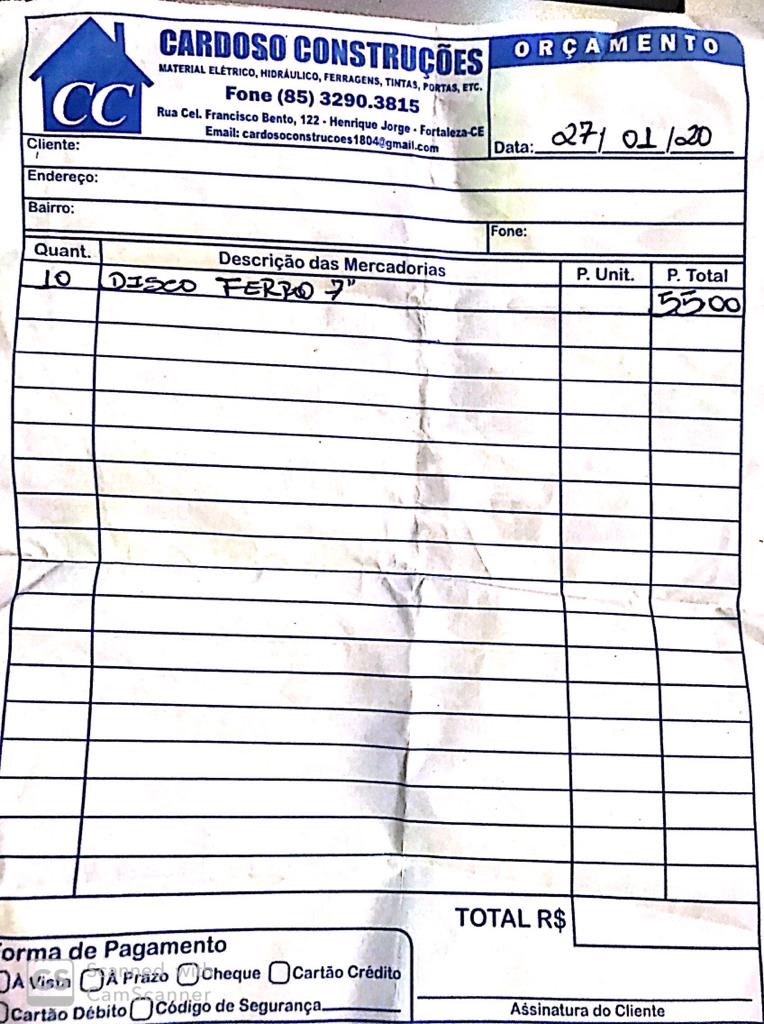 CC
CARDOSO CONSTRUÇÕES
MATERIAL ELÉTRICO, HIDRÁULICO, FERRAGENS, TINTAS, PORTAS, ETC.
Fone (85) 3290.3815
Rua Cel. Francisco Bento, 122 - Henrique Jorge - Fortaleza-CE
Email: cardosoconstrucoes1804@gmail.com
ORÇAMENTO
Data: 27/ 01 /20
Cliente:
Endereço:
Bairro:
Fone:
Quant. Descrição das Mercadorias P. Unit. P. Total
10 DISCO FERRO 7" 5500
TOTAL R$
orma de Pagamento
A Vista À Prazo Cheque Cartão Crédito
Cartão Débito Código de Segurança
Assinatura do Cliente
CS Scanned with
CamScanner